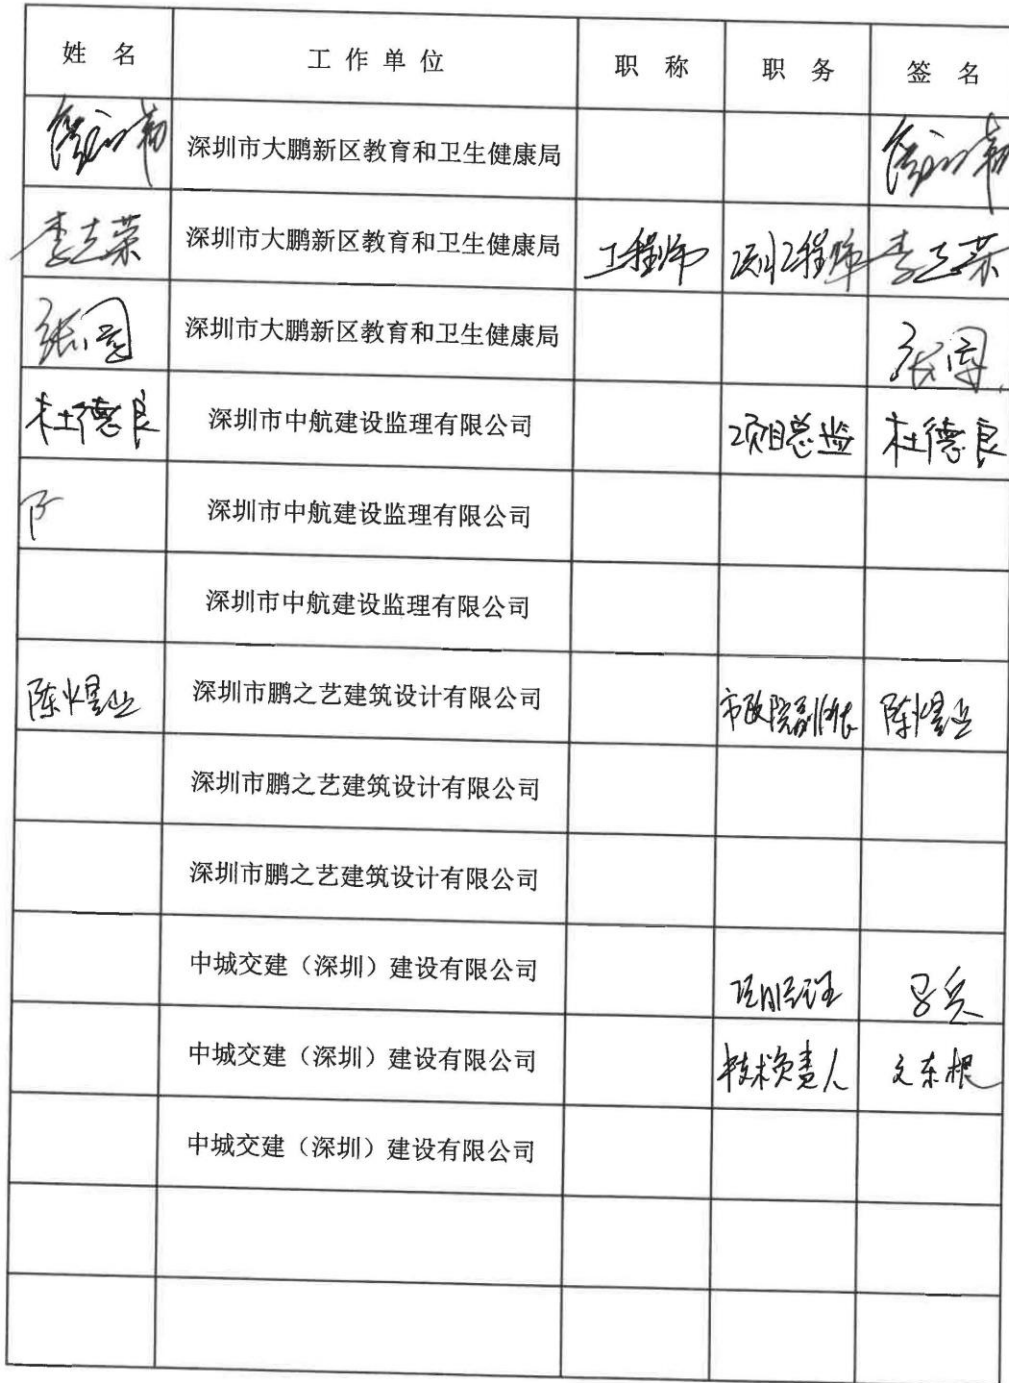 姓 名 工 作 单 位 职 称 职 务 签 名
深圳市大鹏新区教育和卫生健康局
李志荣 深圳市大鹏新区教育和卫生健康局 工程师 项目工程师 李志荣
张園 深圳市大鹏新区教育和卫生健康局 张園
杜德良 深圳市中航建设监理有限公司 项目总监 杜德良
深圳市中航建设监理有限公司
深圳市中航建设监理有限公司
陈煜业 深圳市鹏之艺建筑设计有限公司 市政院副院长 陈煜业
深圳市鹏之艺建筑设计有限公司
深圳市鹏之艺建筑设计有限公司
中城交建（深圳）建设有限公司 项目经理
中城交建（深圳）建设有限公司 技术负责人 文东根
中城交建（深圳）建设有限公司